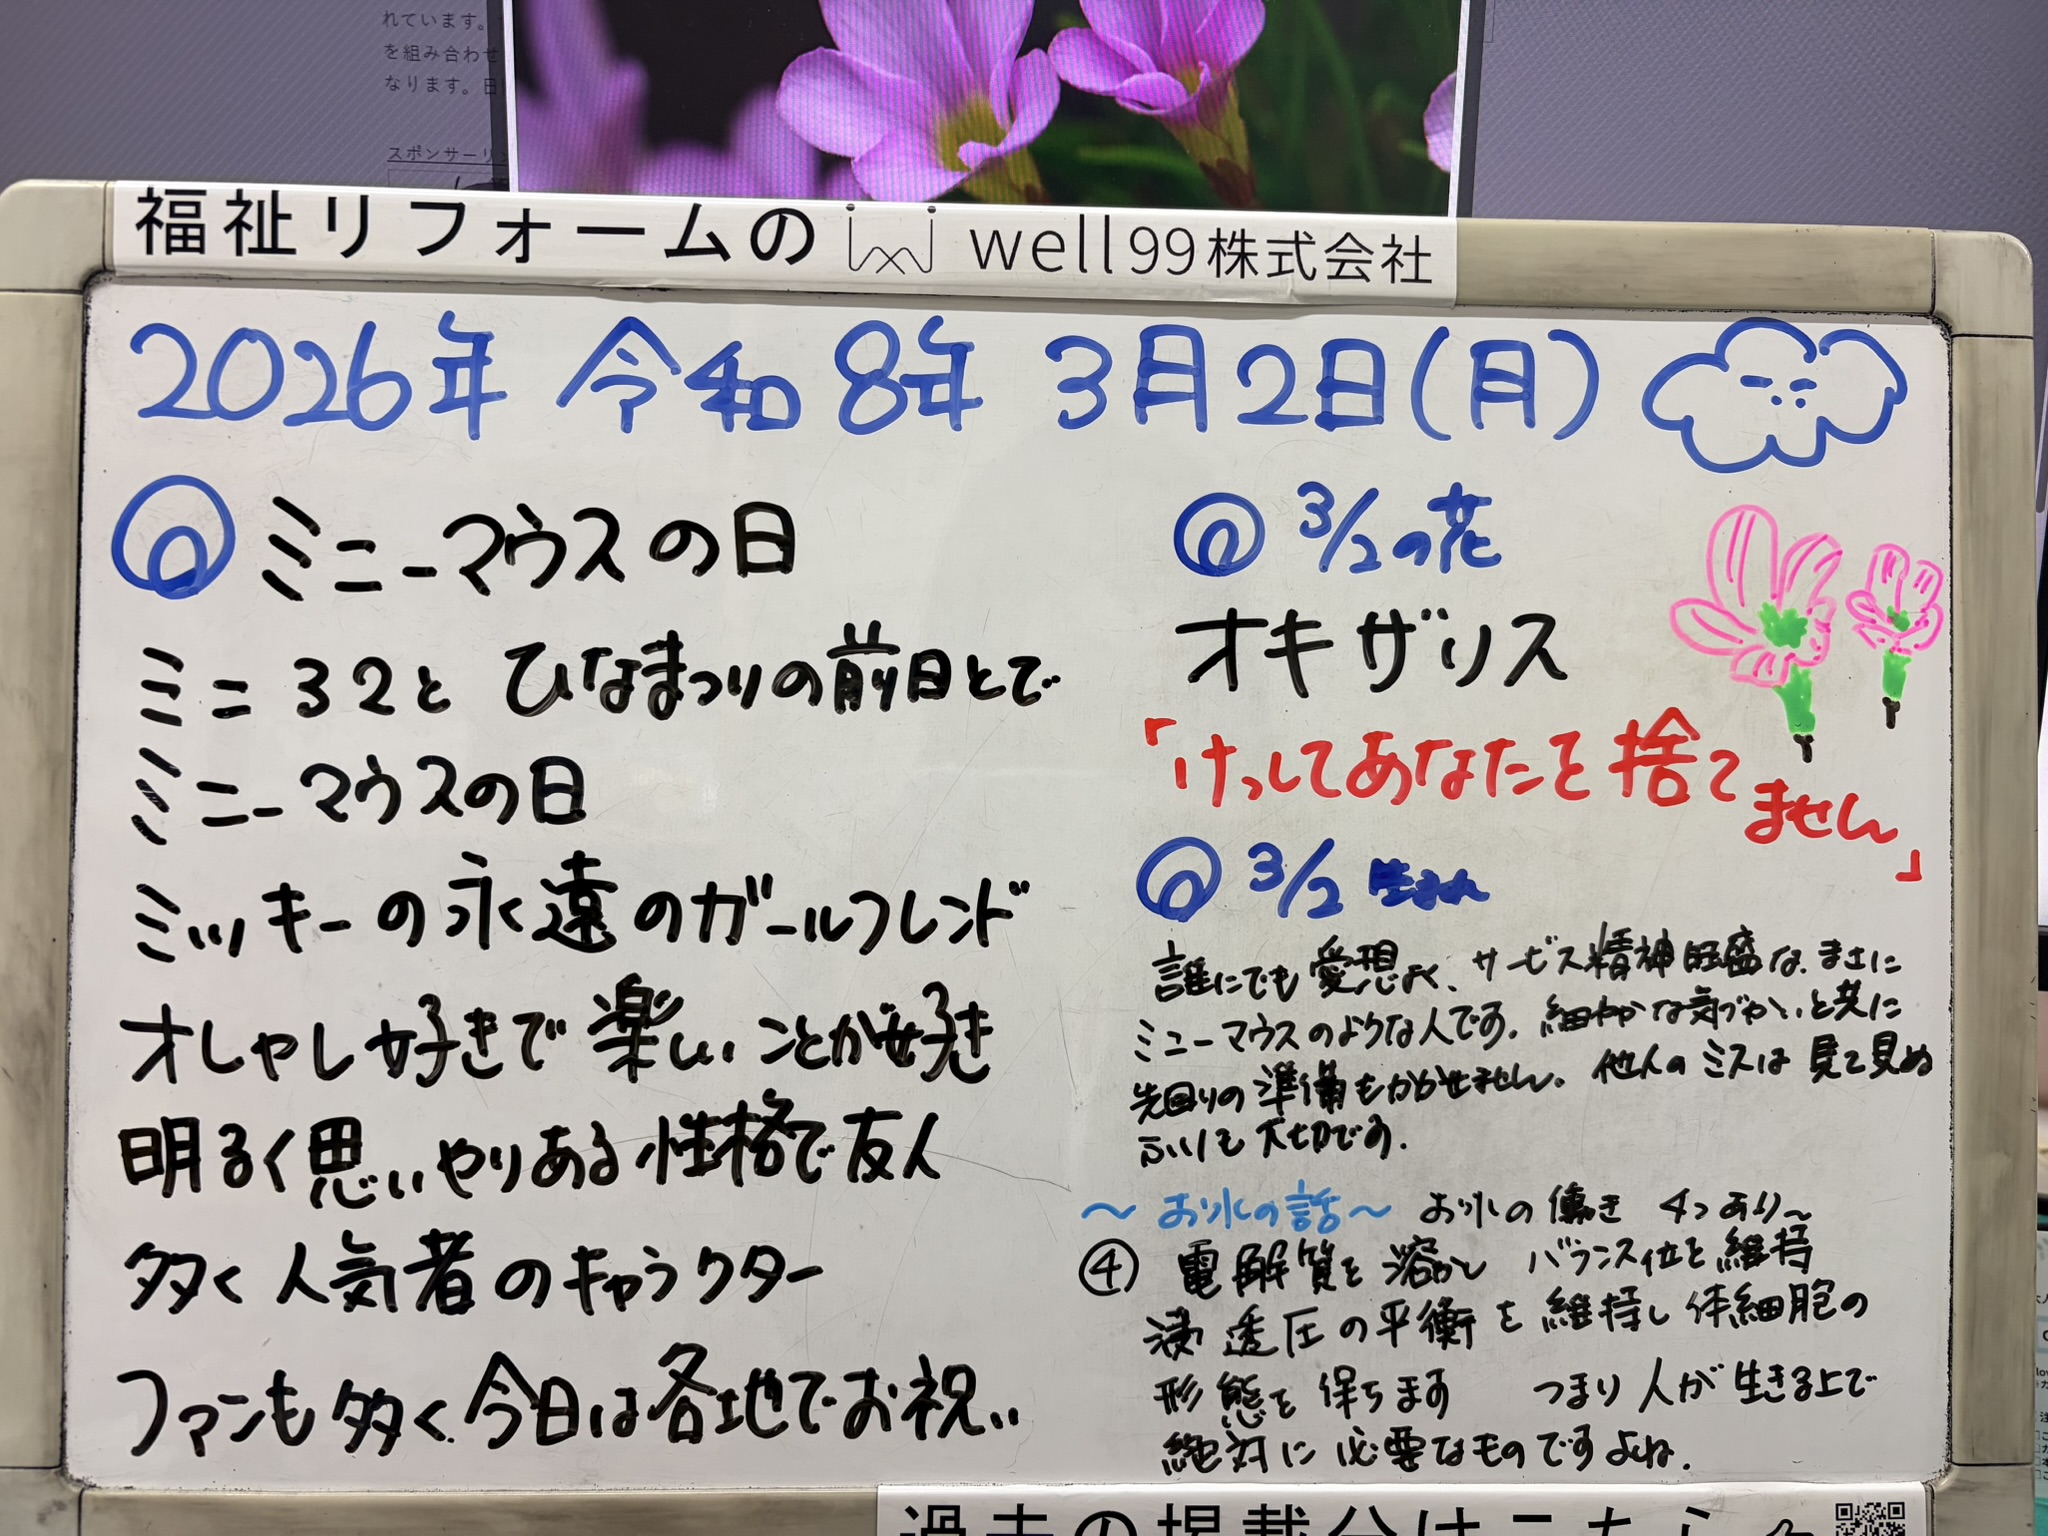 れています。
を組み合わせ
なります。日
スポンサーリ
福祉リフォームの well99株式会社
2026年 令和8年 3月2日(月)
ミニーマウスの日
ミニ 32と ひなまつりの前日とで
ミニーマウスの日
ミッキーの永遠のガールフレンド
オしゃし好きで楽しいことが好き
明るく思いやりある性格で友人
多く人気者のキャラクター
ファンも多く今日は各地でお祝い
3/2の花
オキザリス
「けっしてあなたを捨て
ません」
3/2 生まれ
誰にでも愛想よく、サービス精神旺盛な、まさに
ミニーマウスのような人です。細やかな気づかいと共に
先回りの準備もかかせません。他人のミスは見て見ぬ
ふりも大切です。
〜お水の話〜 お水の働き 4つあり〜
④ 電解質を溶かし バランス位を維持
浸透圧の平衡を維持し体細胞の
形態を保ちます つまり人が生きる上で
絶対に必要なものですよね。
過去の掲載分はこちら